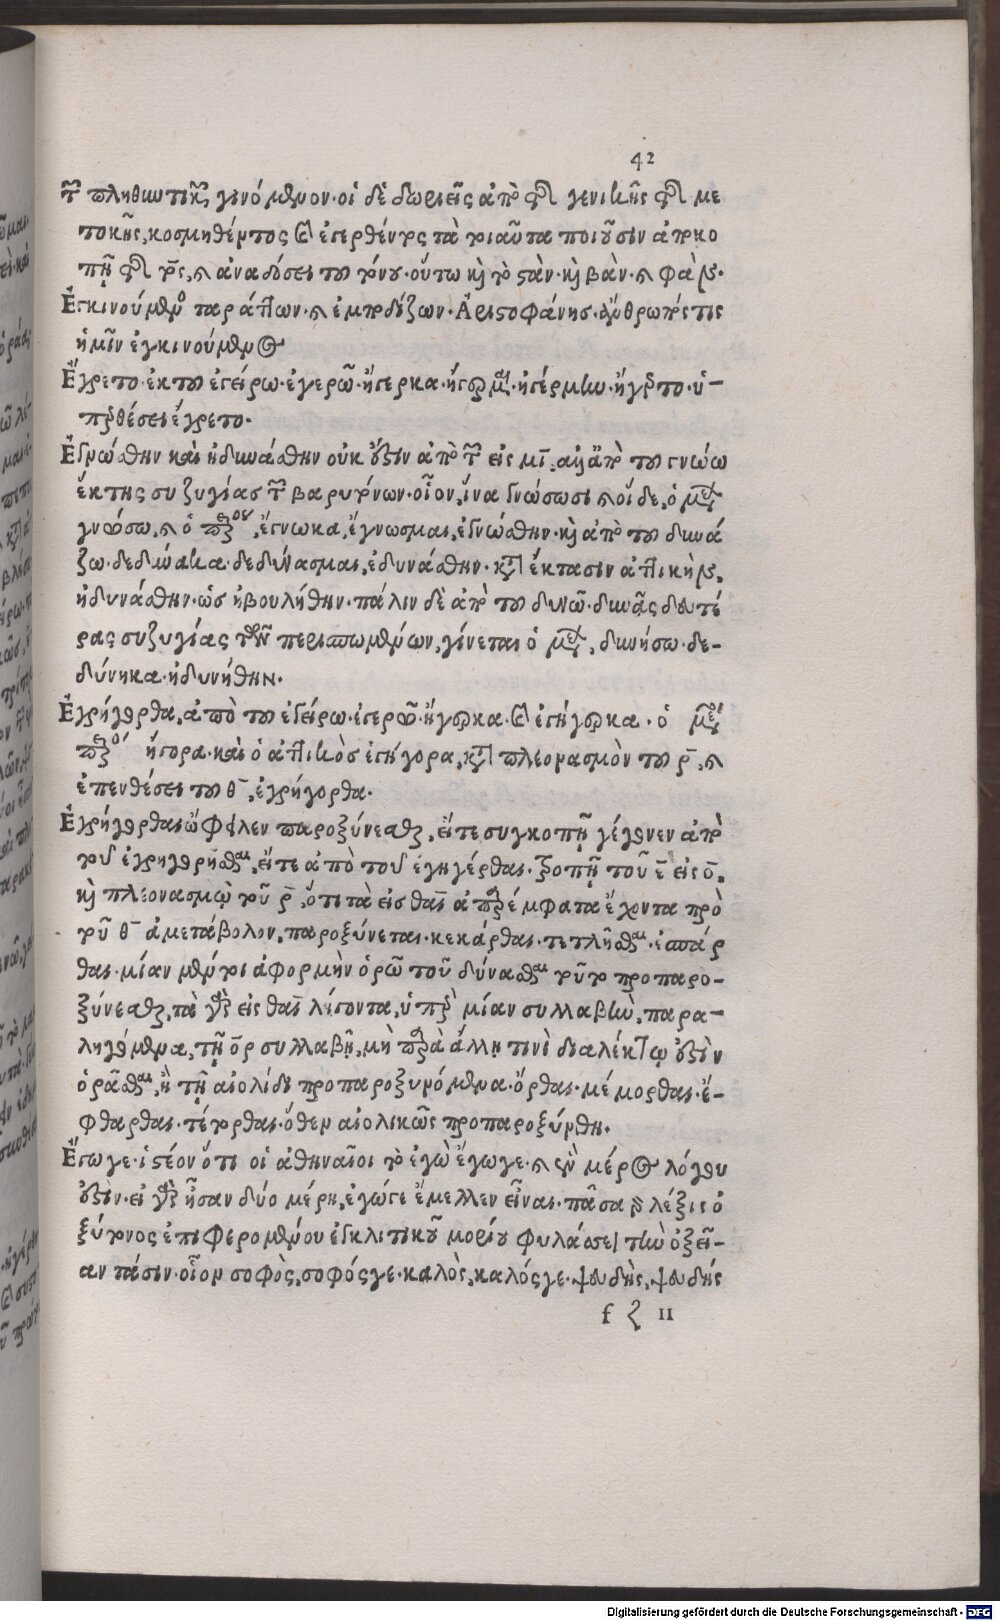 42
τῶν πληθυντικῶν γινόμενον· οἱ δὲ δωριεῖς ἀπὸ τῆς γενικῆς τῆς με
τοχῆς, κοσμηθέντος καὶ ἐγερθέντος τὰ τοιαῦτα ποιοῦσιν ἀποκο
πῇ τῆς τος, καὶ ἀναδόσει τοῦ τόνου· οὕτω καὶ τὸ στὰν· καὶ βὰν· καὶ φάν·
Ἐγκινούμενος ταράττων· καὶ ἐμποδίζων· Ἀριστοφάνης· ἄνθρωπός τις
ἡμῖν ἐγκινούμενος
Ἔγρετο· ἐκ τοῦ ἐγείρω· ἐγερῶ· ἤγερκα· ἤγερμαι· ἠγέρμην· ἤγρετο· ὑ-
ποθέσει ἔγρετο·
Ἐγνώσθην καὶ ἠδυνάσθην οὐκ εἰσὶν ἀπὸ τῶν εἰς μι, ἀλλ' ἀπὸ τοῦ γνώω
ἕκτης συζυγίας τῶν βαρυτόνων· οἷον, ἵνα γνώσωσι καὶ οἵδε, ὁ μέλλων
γνώσω, καὶ ὁ παρακείμενος, ἔγνωκα, ἔγνωσμαι, ἐγνώσθην· καὶ ἀπὸ τοῦ δυνά
ζω· δεδύνακα· δεδύνασμαι, ἐδυνάσθην· κατὰ ἔκτασιν ἀττικὴν,
ἠδυνάσθην· ὡς ἠβουλήθην· πάλιν δὲ ἀπὸ τοῦ δυνῶ· δυνᾷς δευτέ
ρας συζυγίας τῶν περισπωμένων, γίνεται ὁ μέλλων, δυνήσω· δε-
δύνηκα· ἠδυνήθην·
Ἐγρήγορθα, ἀπὸ τοῦ ἐγείρω· ἐγερῶ· ἤγερκα· καὶ ἐγήγερκα· ὁ μέσος
παρακείμενος ἤγορα· καὶ ὁ ἀττικὸς ἐγήγορα, κατὰ πλεονασμὸν τοῦ ρ, καὶ
ἐπενθέσει τοῦ θ, ἐγρήγορθα·
Ἐγρήγορθαι ὤφειλεν παροξύνεσθαι, εἴτε συγκοπῇ γέγονεν ἀπὸ
τοῦ ἐγρηγορῆσθαι, εἴτε ἀπὸ τοῦ ἐγηγέρθαι· τροπῇ τοῦ ε εἰς ο,
καὶ πλεονασμῷ τοῦ ρ, ὅτι τὰ εἰς θαι ἀπαρέμφατα ἔχοντα πρὸ
τοῦ θ ἀμετάβολον, παροξύνεται· κεκάρθαι· τετλῆσθαι· ἐσπάρ
θαι· μίαν μέντοι ἀφορμὴν ὁρῶ τοῦ δύνασθαι τοῦτο προπαρο-
ξύνεσθαι, τὰ γὰρ εἰς θαι λήγοντα, ὑπὲρ μίαν συλλαβὴν, παρα-
ληγόμενα, τῇ ορ συλλαβῇ, μὴ παρὰ ἄλλῃ τινὶ διαλέκτῳ ἐστὶν
ὁρᾶσθαι, ἢ τῇ αἰολίδι προπαροξυνόμενα· ὄρθαι· μέμορθαι· ἔ-
φθαρθαι· τέτορθαι· ὅθεν αἰολικῶς προπαροξύνθη·
Ἔγωγε· ἰστέον ὅτι οἱ ἀθηναῖοι τὸ ἐγὼ ἔγωγε· καὶ ἓν μέρος λόγου
ἐστίν· εἰ γὰρ ἦσαν δύο μέρη, ἐγώγε ἔμελλεν εἶναι· πᾶσα γὰρ λέξις ὀ
ξύτονος ἐπιφερομένου ἐγκλιτικοῦ μορίου φυλάσσει τὴν ὀξεῖ-
αν τάσιν· οἷον σοφὸς, σοφός γε· καλὸς, καλός γε· ψευδὴς, ψευδής
f ζ II
Digitalisierung gefördert durch die Deutsche Forschungsgemeinschaft - DFG